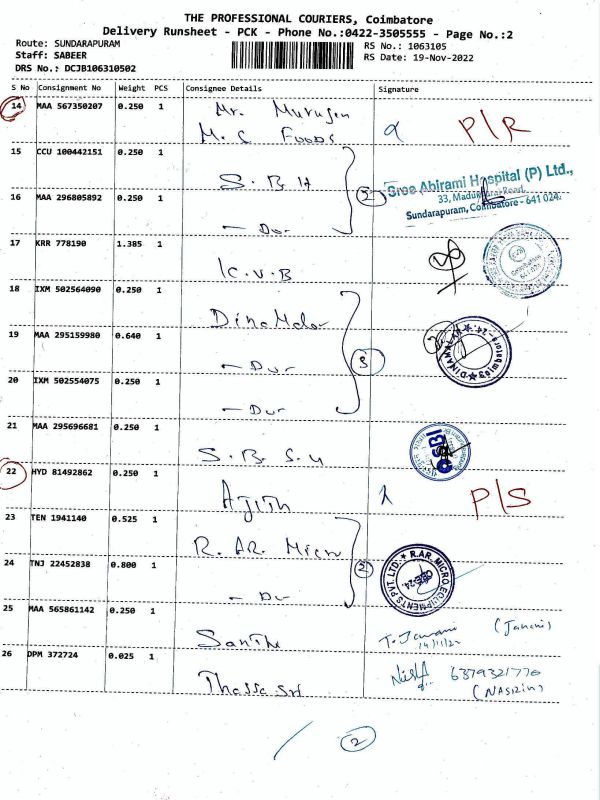 THE PROFESSIONAL COURIERS, Coimbatore
Delivery Runsheet - PCK - Phone No.:0422-3505555 - Page No.:2
Route: SUNDARAPURAM RS No.: 1063105
Staff: SABEER RS Date: 19-Nov-2022
DRS No.: DCJB106310502
S No Consignment No Weight PCS Consignee Details Signature
14 MAA 567350207 0.250 1 Mr. Murugan
M. C Foods P/R
15 CCU 100442151 0.250 1
S. B H
2 Sree Abirami Hospital (P) Ltd.,
33, Madukkarai Road,
Sundarapuram, Coimbatore - 641 024.
16 MAA 296805892 0.250 1
17 KRR 778190 1.385 1
K.V.B
18 IXM 502564090 0.250 1
DINAMALAR
19 MAA 295159980 0.640 1
3
20 IXM 502554075 0.250 1
21 MAA 295696681 0.250 1
SBI
22 HYD 81492862 0.250 1
Ajith P/S
23 TEN 1941140 0.525 1
R. AR. Micro
24 TNJ 22452838 0.800 1
2 R.AR. MICRO EQUIPMENTS PVT. LTD.
CBE-24.
25 MAA 565861142 0.250 1
(Janani)
26 DPM 372724 0.025 1
6379321770
(NASRIN)
2